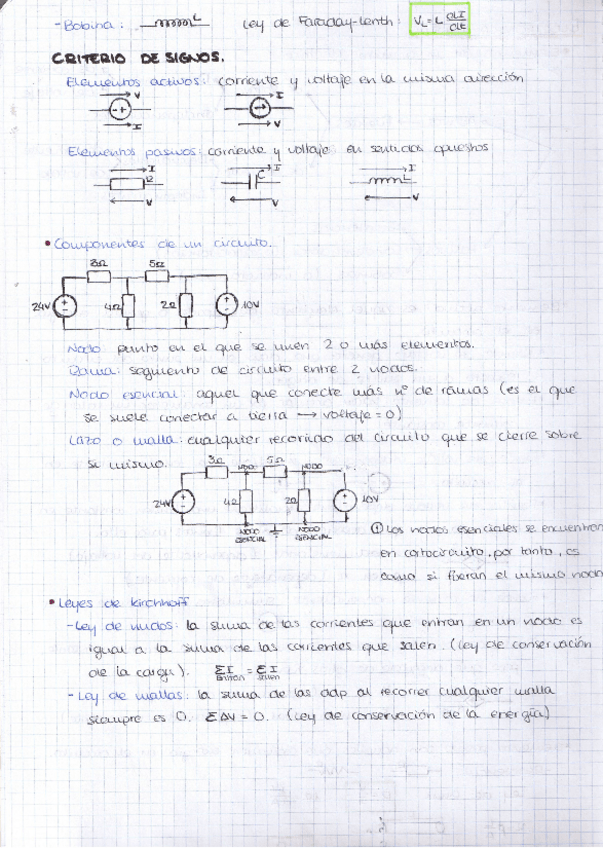 - Bobina: L Ley de Faraday-Lenth: VL = L dI/dt
CRITERIO DE SIGNOS.
Elementos activos: corriente y voltaje en la misma dirección
V I
I V
Elementos pasivos: corriente y voltaje en sentidos opuestos
I I I
R C L
V V V
• Componentes de un circuito.
3Ω 5Ω
24V 4Ω 2Ω 10V
Nodo: punto en el que se unen 2 o más elementos.
Rama: segmento de circuito entre 2 nodos.
Nodo esencial: aquel que conecte más nº de ramas (es el que
se suele conectar a tierra → voltaje = 0)
Lazo o malla: cualquier recorrido del circuito que se cierre sobre
si mismo.
3Ω NODO 5Ω NODO
24V 4Ω 2Ω 10V
NODO ESENCIAL NODO ESENCIAL
Los nodos esenciales se encuentran
en cortocircuito, por tanto, es
como si fueran el mismo nodo
• Leyes de Kirchhoff
- Ley de nudos: la suma de las corrientes que entran en un nodo es
igual a la suma de las corrientes que salen. (Ley de conservación
de la carga). ΣI entran = ΣI salen
- Ley de mallas: la suma de las ddp al recorrer cualquier malla
siempre es 0. ΣΔV = 0. (Ley de conservación de la energía)